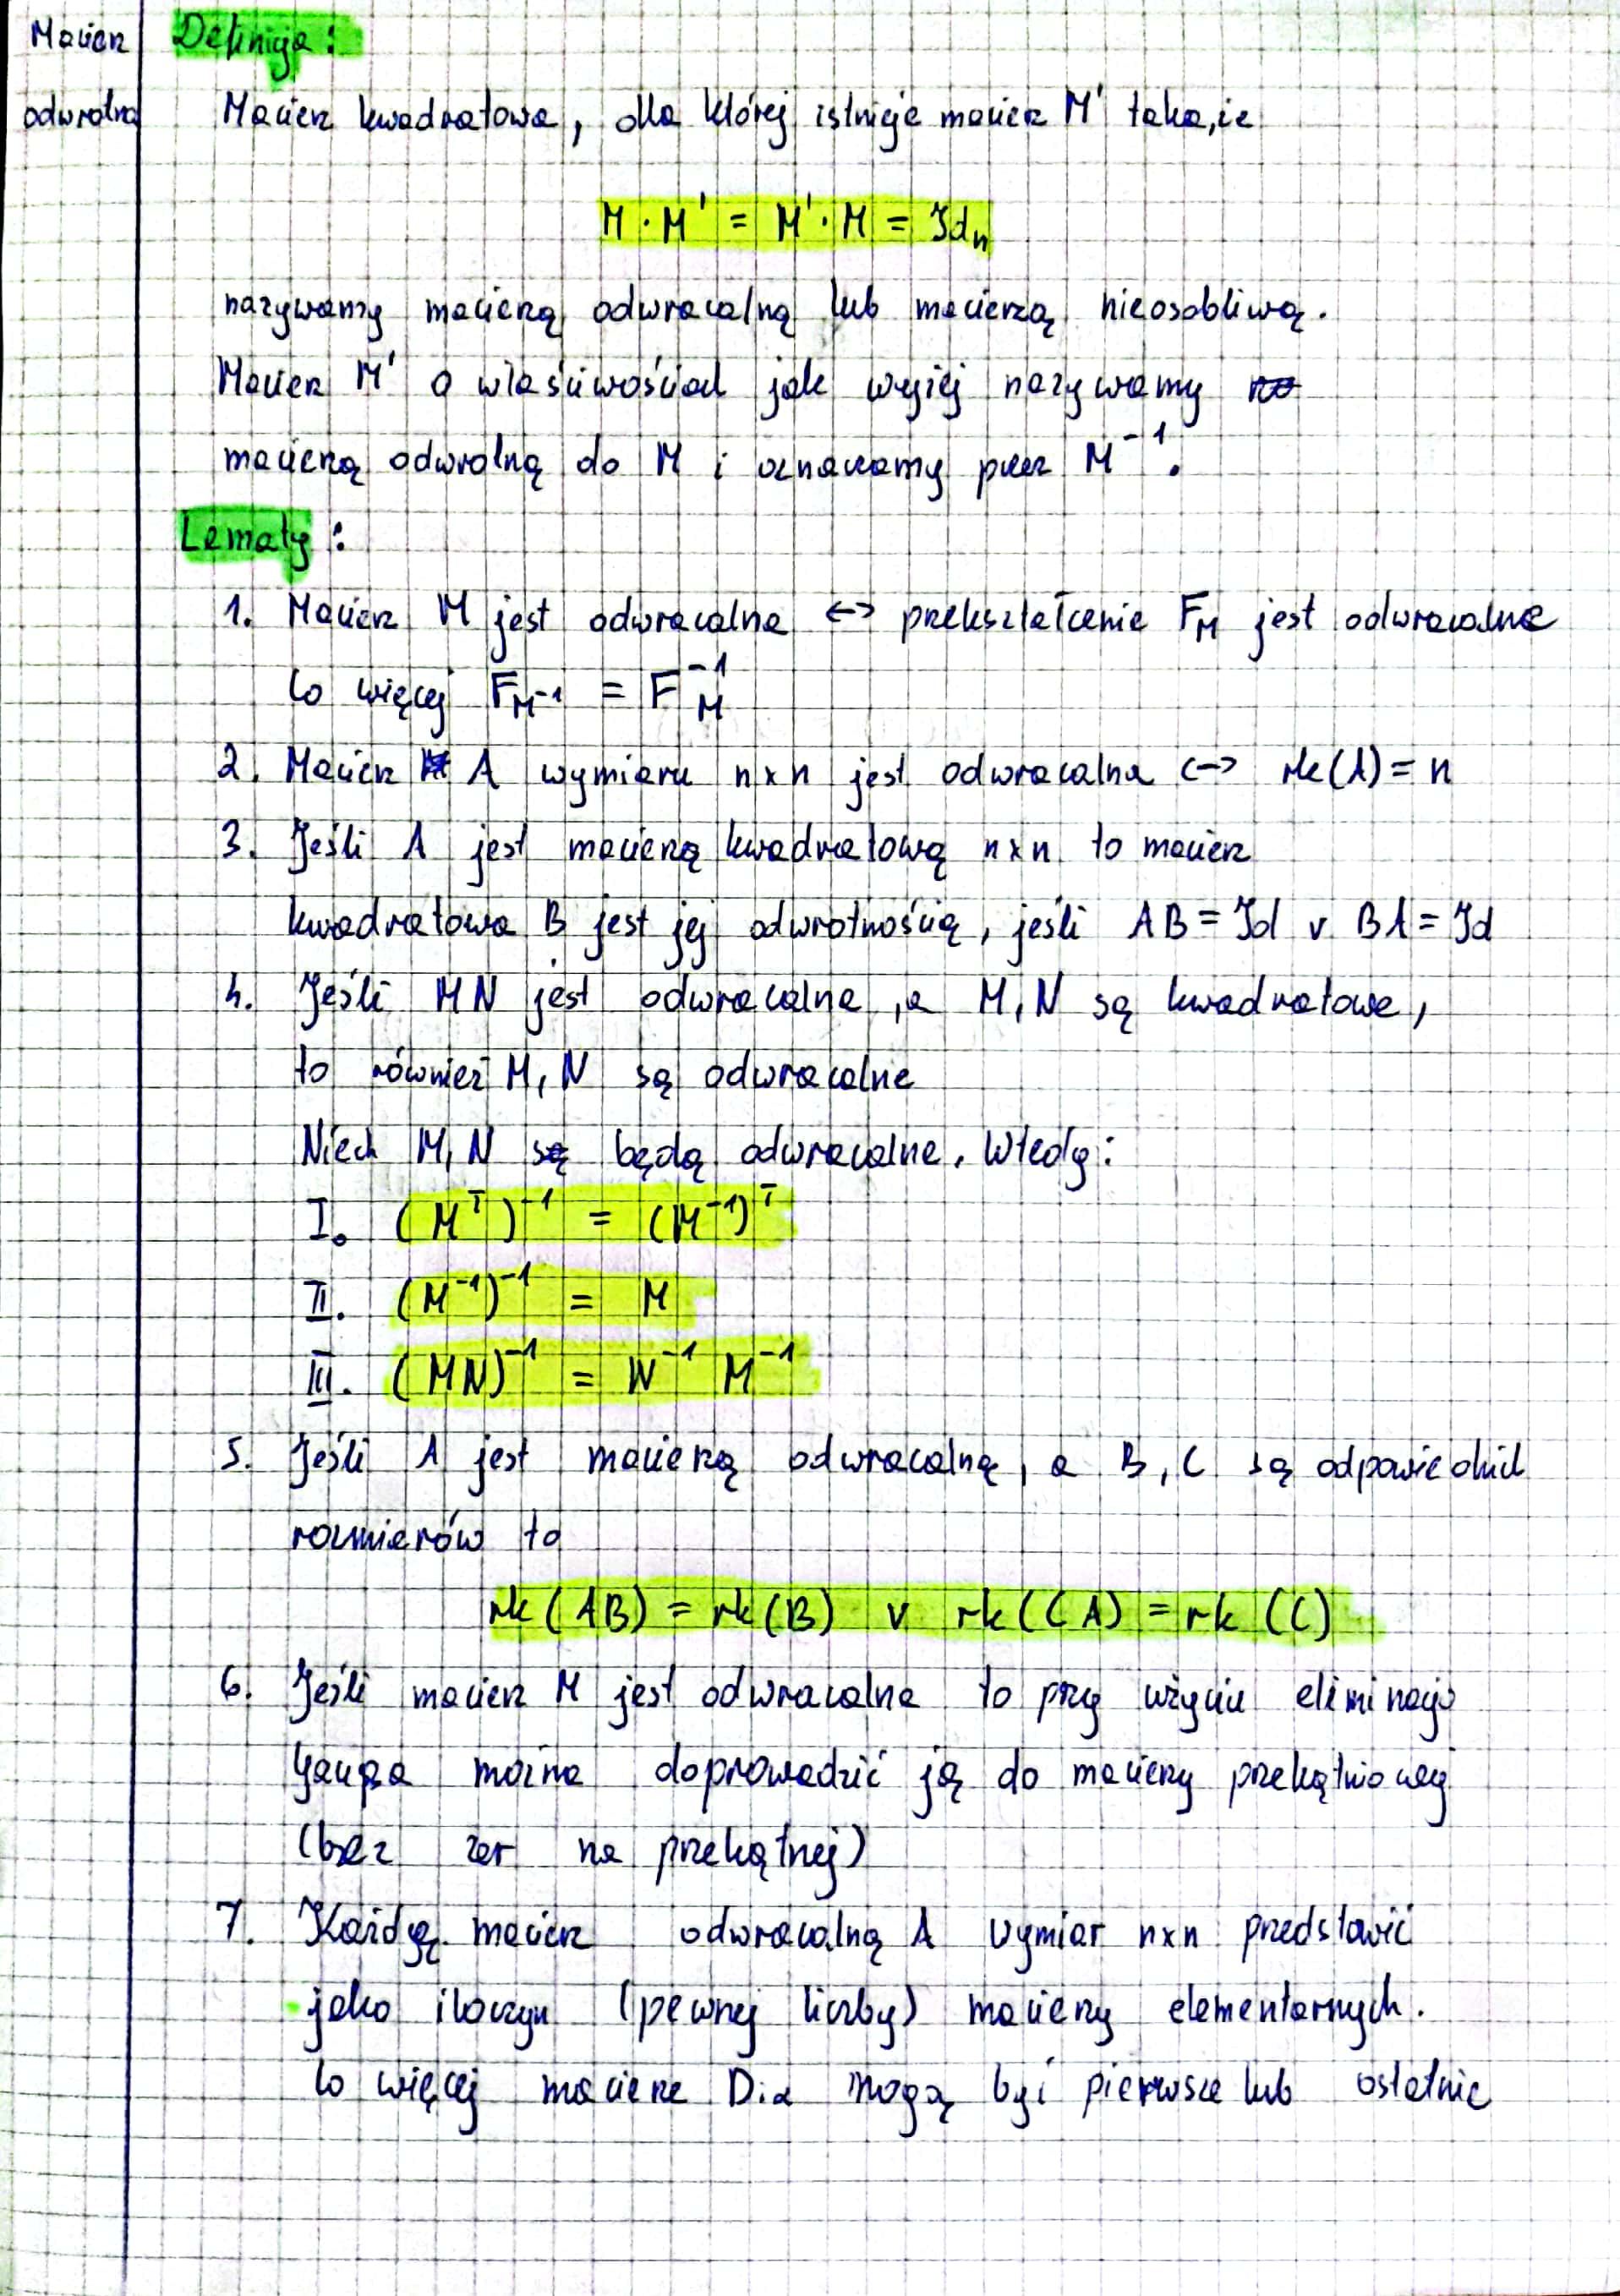 Macierz
odwrotna
Definicja:
Macierz kwadratowa, dla której istnieje macierz M' taka, że
M · M' = M' · M = Idₙ
nazywamy macierzą odwracalną lub macierzą nieosobliwą.
Macierz M' o właściwościach jak wyżej nazywamy
macierzą odwrotną do M i oznaczamy przez M⁻¹.
Lematy:
1. Macierz M jest odwracalna <-> przekształcenie F_M jest odwracalne
Co więcej F_{M⁻¹} = F_M⁻¹
2. Macierz A wymiaru n×n jest odwracalna <-> rk(A) = n
3. Jeśli A jest macierzą kwadratową n×n to macierz
kwadratowa B jest jej odwrotnością, jeśli AB = Id v BA = Id
4. Jeśli MN jest odwracalne, a M, N są kwadratowe,
to również M, N są odwracalne
Niech M, N będą odwracalne. Wtedy:
I. (Mᵀ)⁻¹ = (M⁻¹)ᵀ
II. (M⁻¹)⁻¹ = M
III. (MN)⁻¹ = N⁻¹ M⁻¹
5. Jeśli A jest macierzą odwracalną, a B, C są odpowiednich
rozmiarów to
rk(AB) = rk(B) v rk(CA) = rk(C)
6. Jeśli macierz M jest odwracalna to przy użyciu eliminacji
Gaussa można doprowadzić ją do macierzy przekątniowej
(bez zer na przekątnej)
7. Każdą macierz odwracalną A wymiar n×n przedstawić
jako iloczyn (pewnej liczby) macierzy elementarnych.
Co więcej macierze Diα mogą być pierwsze lub ostatnie